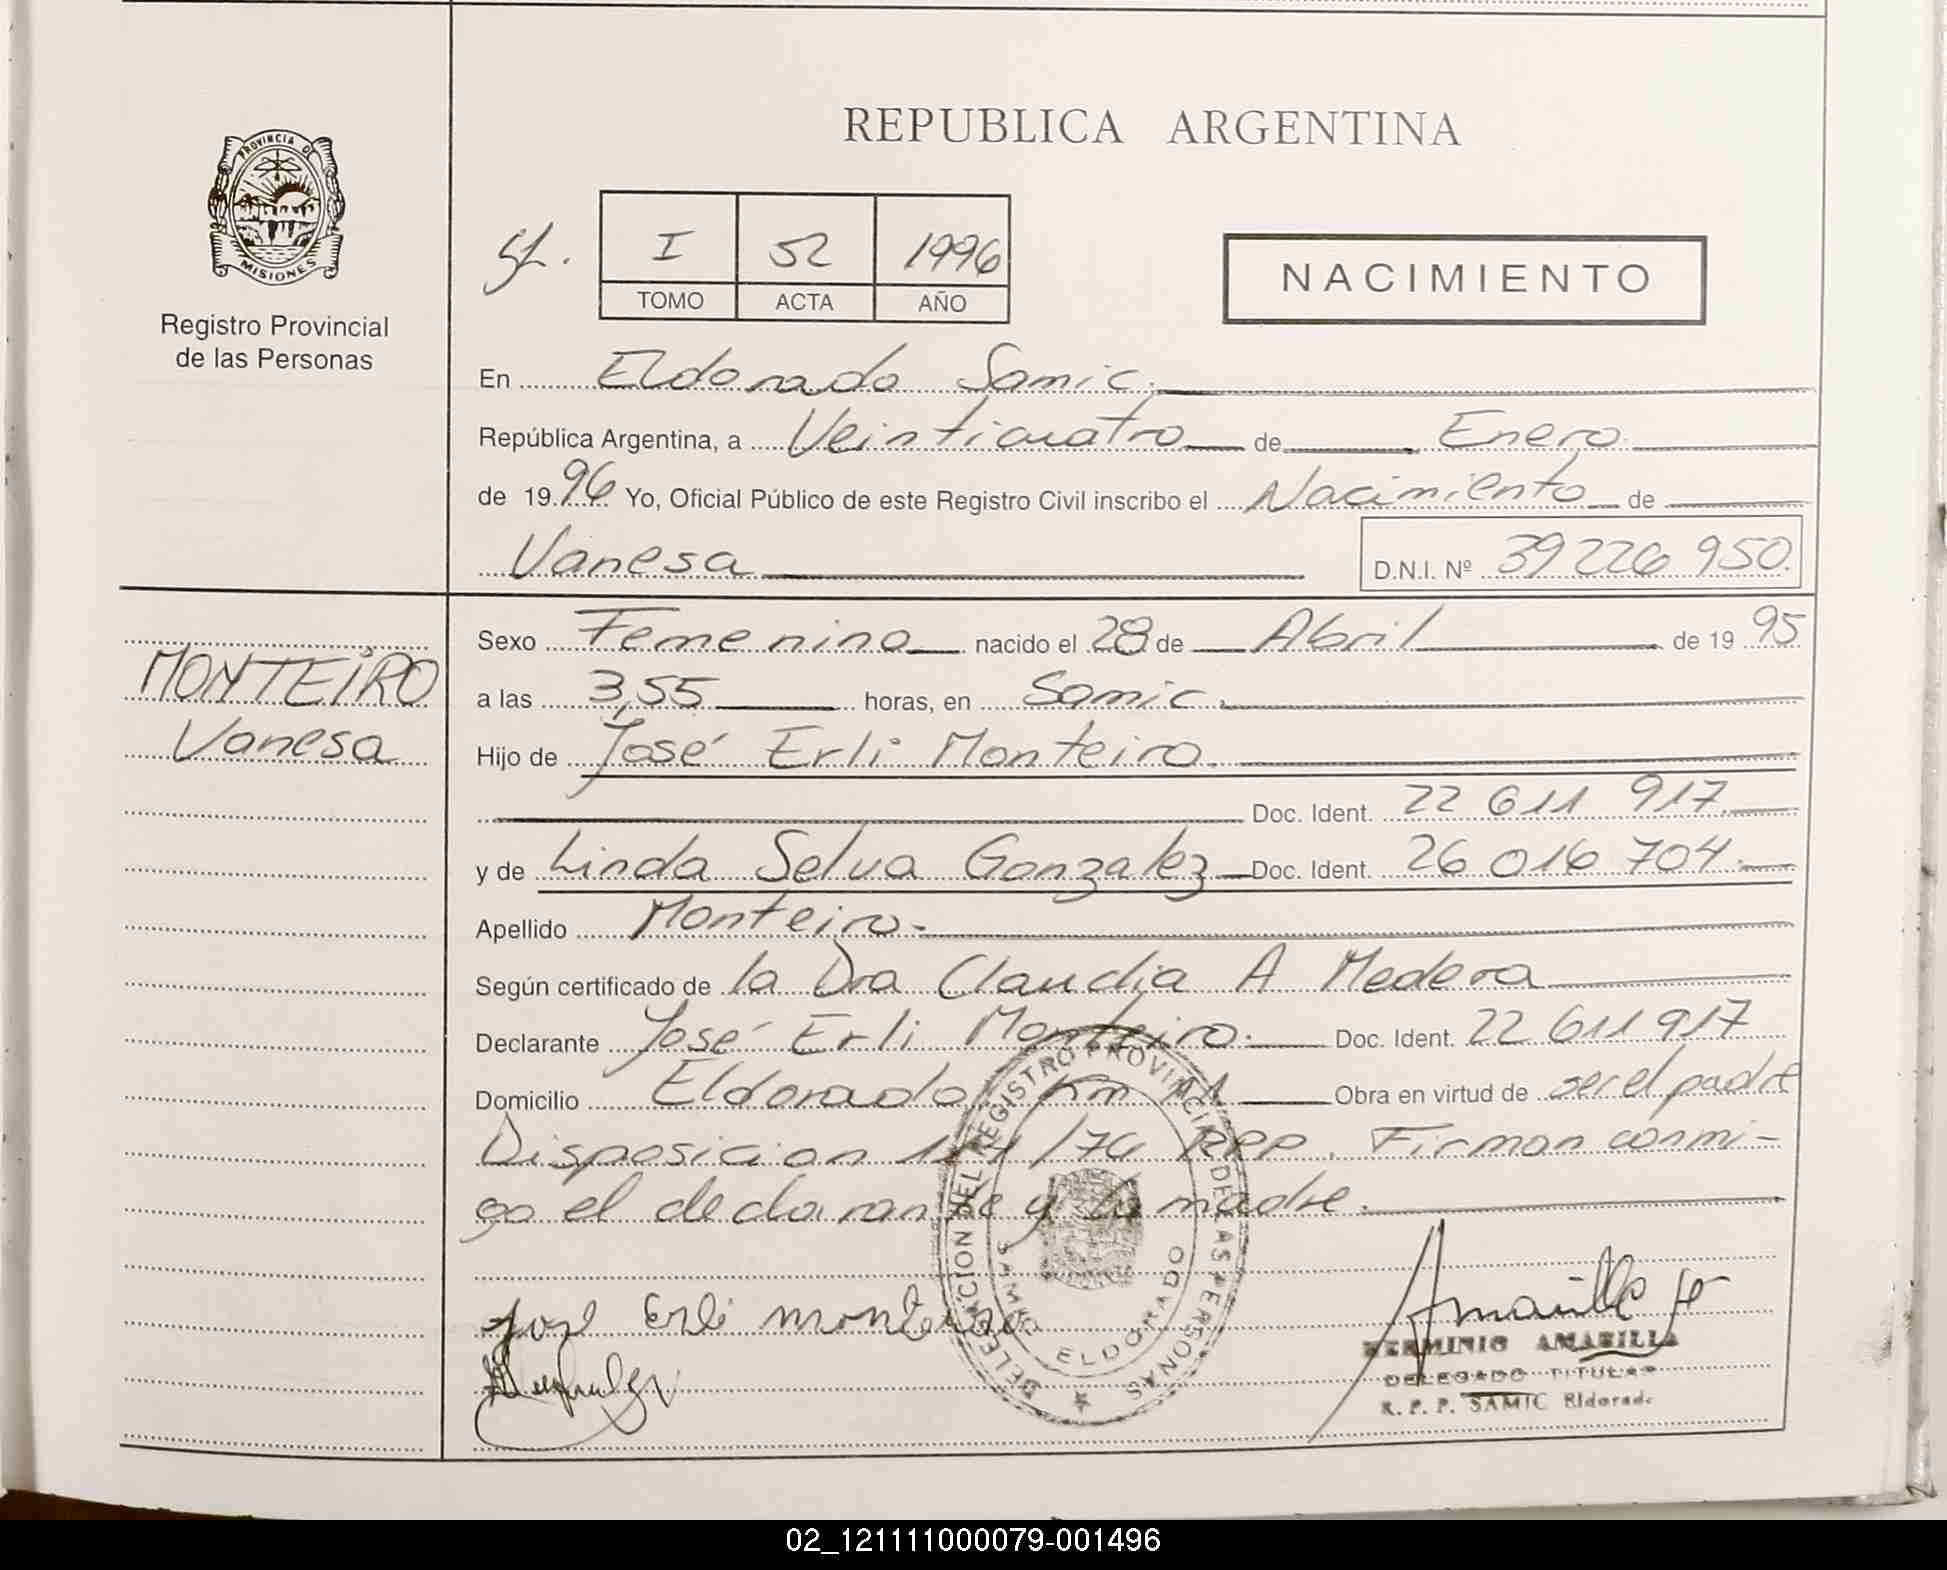 REPUBLICA ARGENTINA
PROVINCIA DE
MISIONES
Registro Provincial
de las Personas
I 52 1996
TOMO ACTA AÑO
NACIMIENTO
En Eldorado Samic.
República Argentina, a Veinticuatro de Enero.
de 1996 Yo, Oficial Público de este Registro Civil inscribo el Nacimiento de
Vanesa D.N.I. Nº 39 226 950.
MONTEIRO
Vanesa
Sexo Femenino nacido el 28 de Abril de 1995
a las 3,55 horas, en Samic.
Hijo de José Erli Monteiro.
Doc. Ident. 22 611 917
y de Linda Selva Gonzalez Doc. Ident. 26 016 704.
Apellido Monteiro.
Según certificado de la Dra Claudia A Medera
Declarante José Erli Monteiro. Doc. Ident. 22 611 917
Domicilio Eldorado Km Obra en virtud de ser el padre
Disposicion /74 RPP. Firman conmi-
go el declarante y la madre.
Jose Erli monteiro
DELEGACION DEL REGISTRO PROVINCIAL DE LAS PERSONAS
SAMIC ELDORADO
HERMINIO AMARILLA
DELEGADO TITULAR
R. P. P. SAMIC Eldorado
02_121111000079-001496